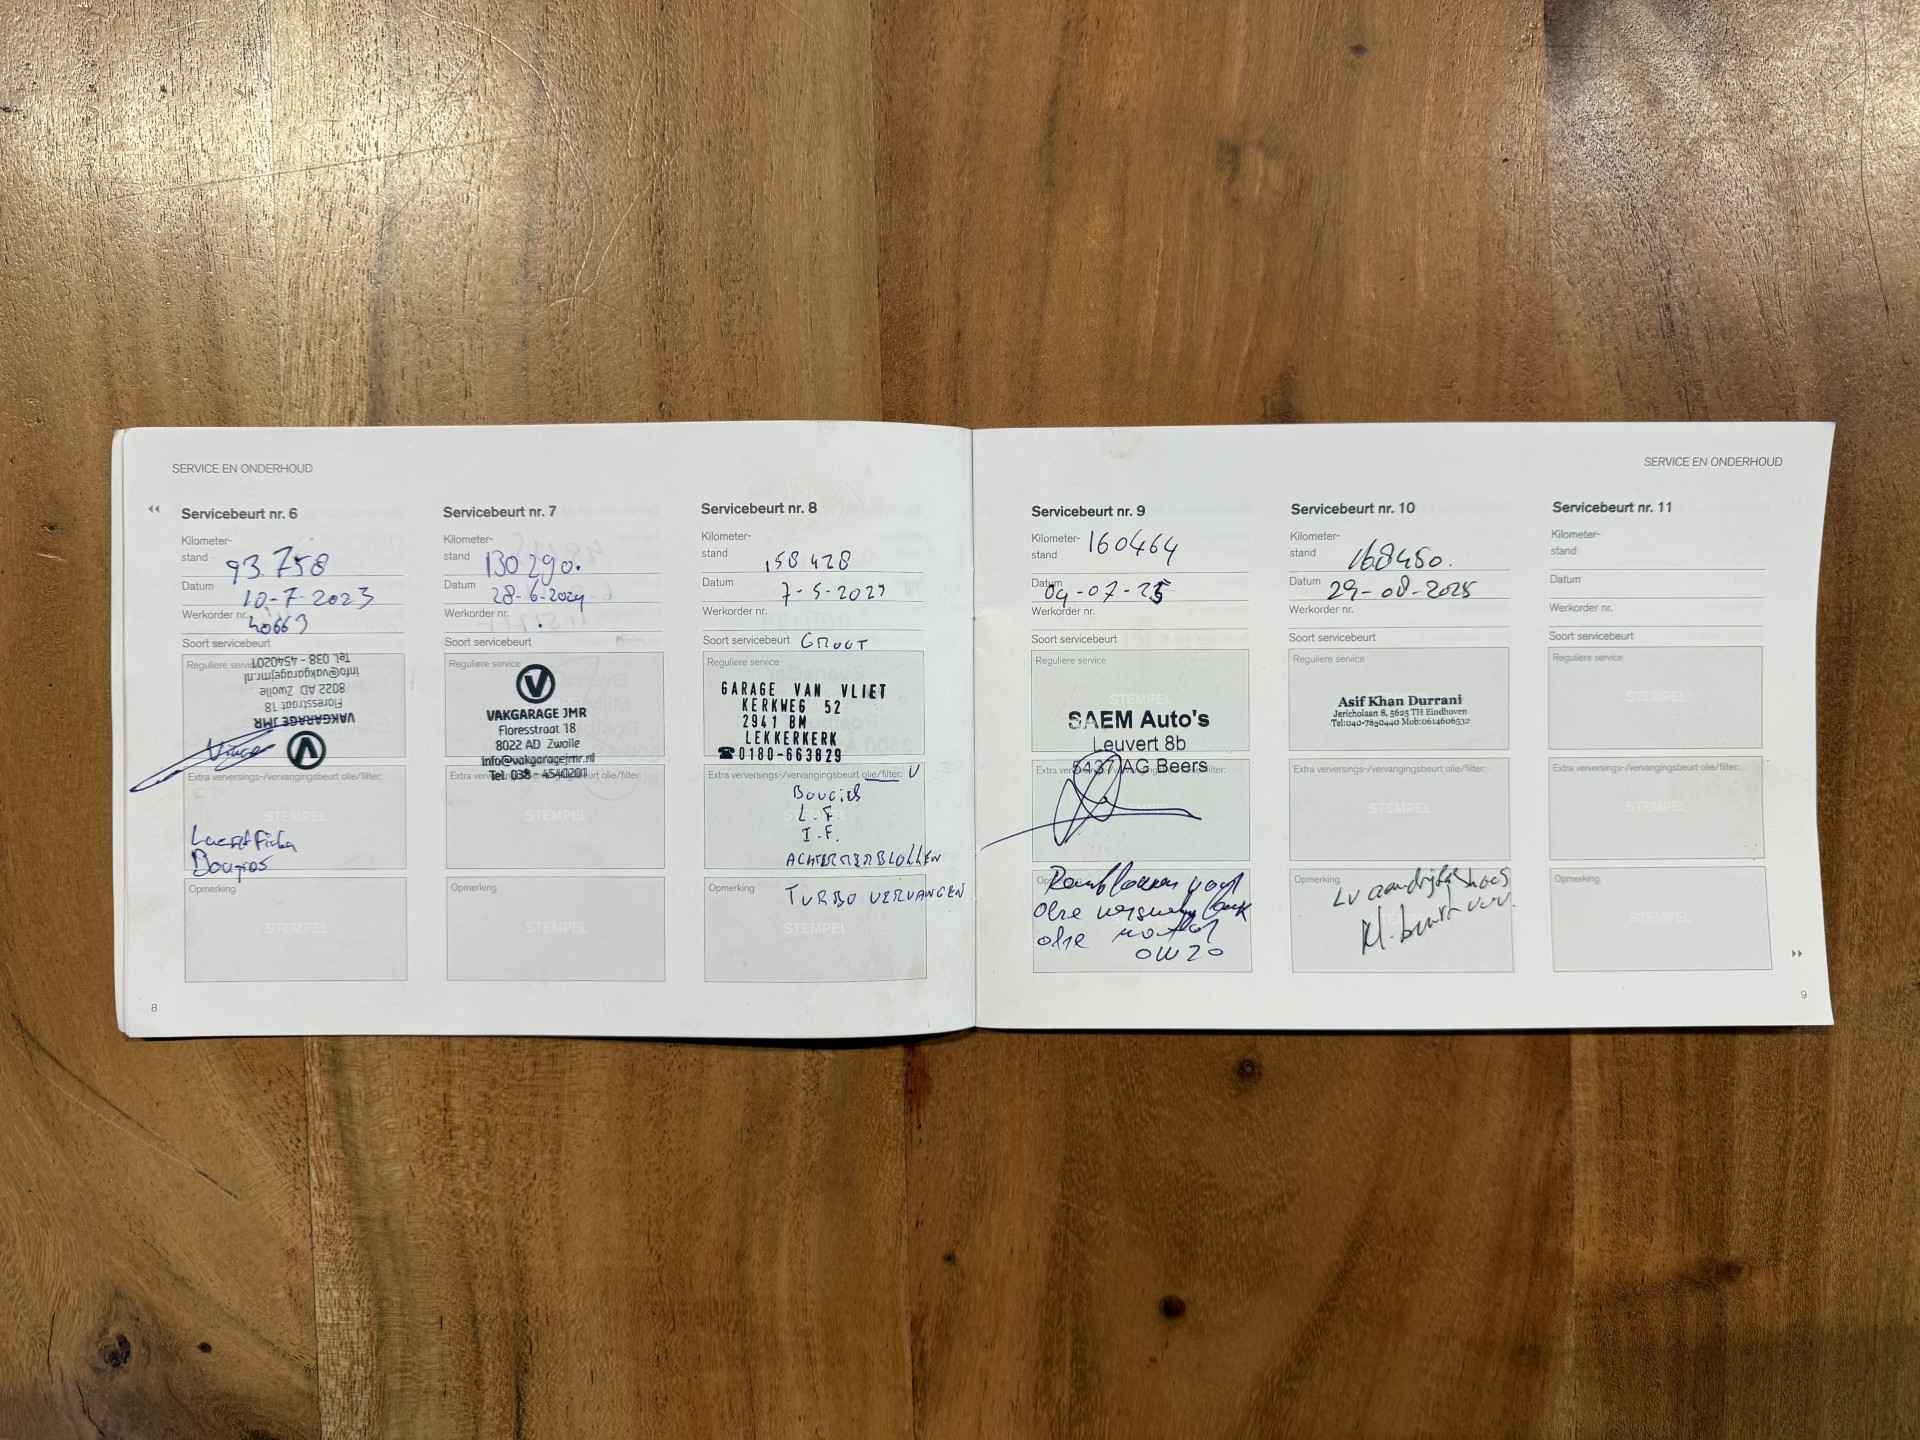 SERVICE EN ONDERHOUD
Servicebeurt nr. 6
Kilometer-
stand 93.758
Datum 10-7-2023
Werkorder nr. 40663
Soort servicebeurt
Reguliere service
Tel. 038 - 4540201
info@vakgaragejmr.nl
8022 AD Zwolle
Floresstraat 18
VAKGARAGE JMR
Extra verversings-/vervangingsbeurt olie/filter:
STEMPEL
Opmerking
STEMPEL
8
Servicebeurt nr. 7
Kilometer-
stand 130290.
Datum 28-6-2024
Werkorder nr.
Soort servicebeurt
Reguliere service
VAKGARAGE JMR
Floresstraat 18
8022 AD Zwolle
info@vakgaragejmr.nl
Tel. 038 - 4540201
Extra verversings-/vervangingsbeurt olie/filter:
STEMPEL
Opmerking
STEMPEL
Servicebeurt nr. 8
Kilometer-
stand 158428
Datum 7-5-202
Werkorder nr.
Soort servicebeurt GROOT
Reguliere service
GARAGE VAN VLIET
KERKWEG 52
2941 BM
LEKKERKERK
☎0180-663829
Extra verversings-/vervangingsbeurt olie/filter: V
BOUGIES
L.F
I.F.
ACHTERREMBLOKKEN
Opmerking TURBO VERVANGEN
STEMPEL
SERVICE EN ONDERHOUD
Servicebeurt nr. 9
Kilometer-
stand 160464
Datum 04-07-25
Werkorder nr.
Soort servicebeurt
Reguliere service
STEMPEL
SAEM Auto's
Leuvert 8b
5437 AG Beers
Extra verversings-/vervangingsbeurt olie/filter:
STEMPEL
Remblokken voor
olie
olie motor
0W20
Servicebeurt nr. 10
Kilometer-
stand 168450.
Datum 29-08-2025
Werkorder nr.
Soort servicebeurt
Reguliere service
Asif Khan Durrani
Jericholaan 8, 5625 TH Eindhoven
Tel:040-7850440 Mob:0614606532
Extra verversings-/vervangingsbeurt olie/filter:
STEMPEL
Opmerking
LV aandrijfas hoes
Kl. beurt
Servicebeurt nr. 11
Kilometer-
stand
Datum
Werkorder nr.
Soort servicebeurt
Reguliere service
STEMPEL
Extra verversings-/vervangingsbeurt olie/filter:
STEMPEL
Opmerking
STEMPEL
9